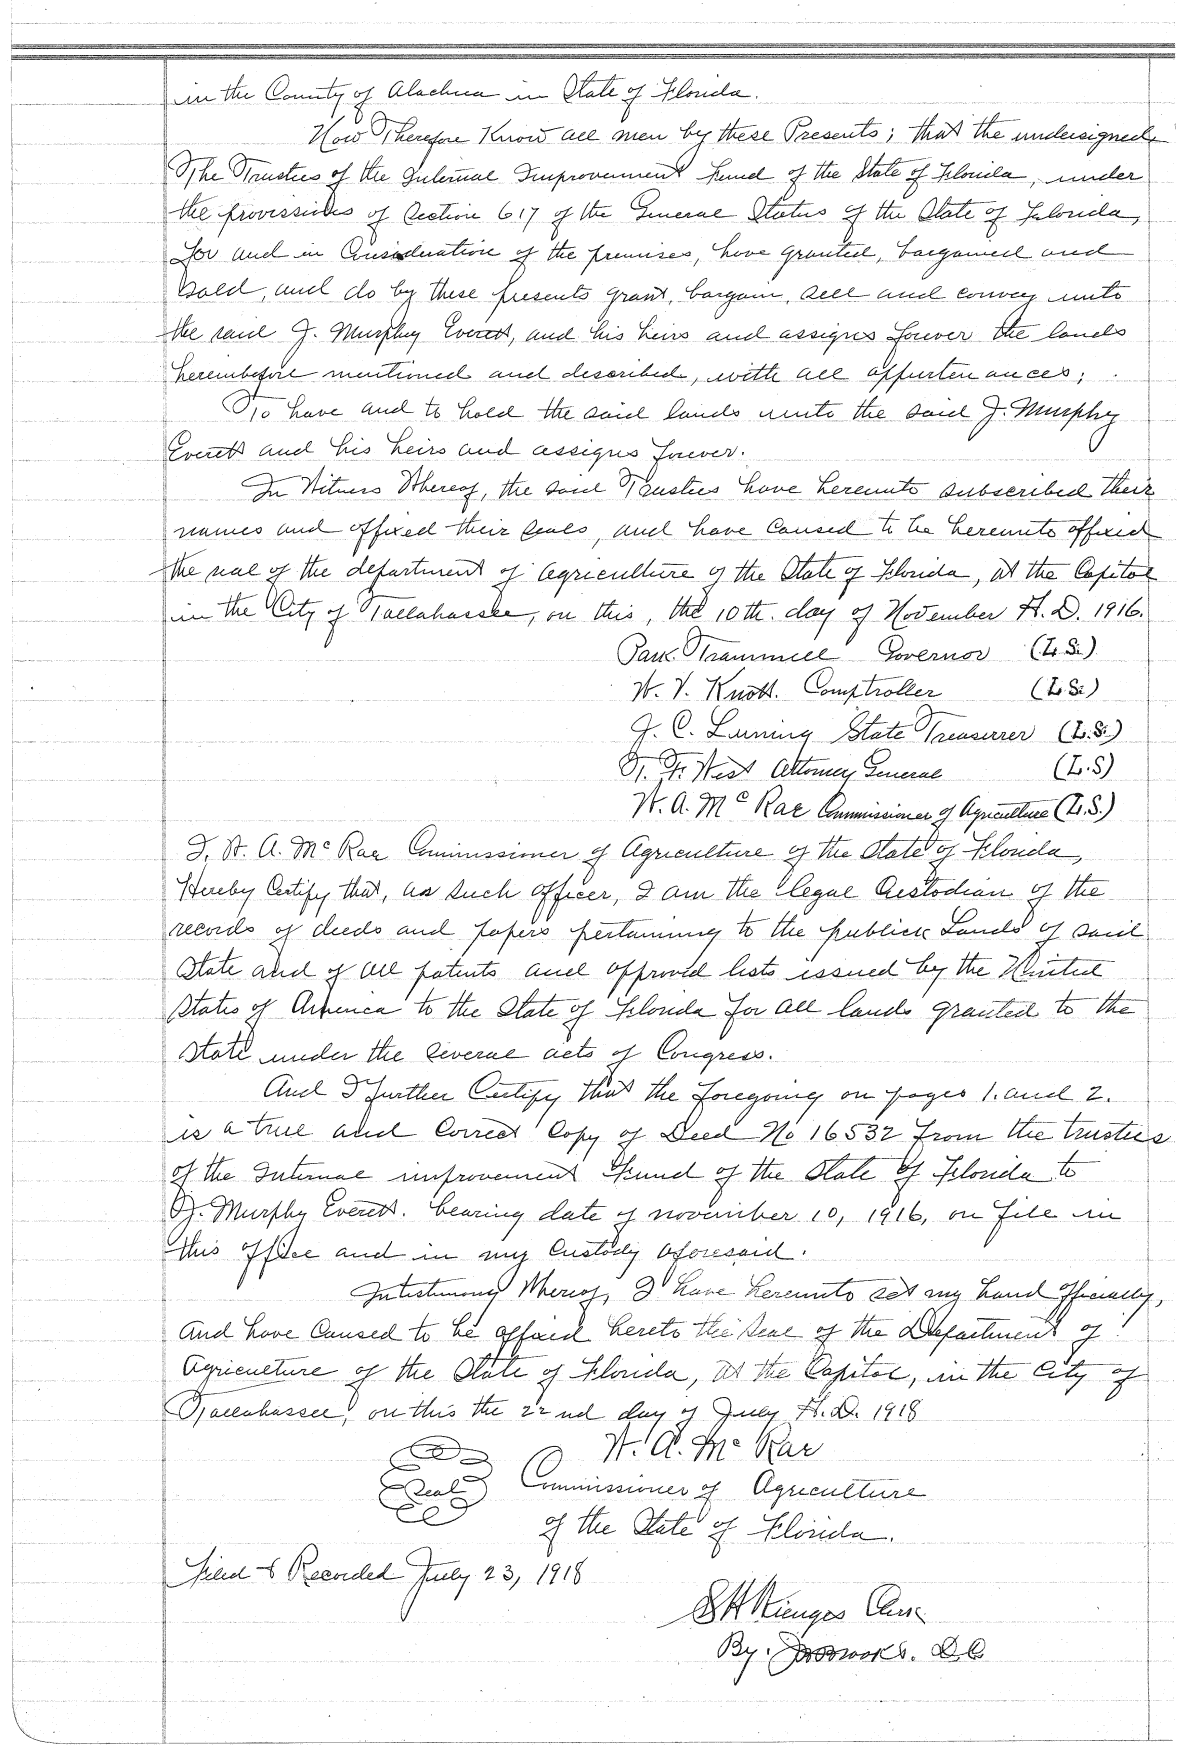 in the County of Alachua in State of Florida.
Now Therefore Know all men by these Presents; that the undersigned,
The Trusties of the Internal Improvement Fund of the State of Florida, under
the provissions of Section 617 of the General Status of the State of Florida,
for and in Consideration of the premises, have granted, bargained and
Sold, and do by these presents grant, bargain, sell and convey unto
the said J. Murphy Everett, and his heirs and assigns forever the lands
hereinbefore mentioned and described, with all appurtenances;
To have and to hold the said lands unto the said J. Murphy
Everett and his heirs and assigns forever.
In Witness Whereof, the said Trusties have hereunto subscribed their
names and affixed their seals, and have Caused to be hereunto affixed
the seal of the department of Agriculture of the State of Florida, at the Capitol
in the City of Tallahassee, on this, the 10th. day of November A.D. 1916.
Park Trammell Governor (L.S.)
W. V. Knott. Comptroller (L.S.)
J. C. Luning State Treasurrer (L.S.)
T. F. West Attorney General (L.S)
W. A. Mc Rae Commissioner of Agriculture (L.S.)
I, W. A. Mc Rae Commissioner of Agriculture of the State of Florida,
Hereby Certify that, as such officer, I am the legal Custodian of the
records of deeds and papers pertaining to the publick Lands of said
State and of all patents and approved lists issued by the United
States of America to the State of Florida for all lands granted to the
State under the several acts of Congress.
And I further Certify that the foregoing on pages 1. and 2.
is a true and Correct Copy of Deed No 16532 from the trustees
of the Internal improvement Fund of the State of Florida to
J. Murphy Everett. bearing date of november 10, 1916, on file in
this office and in my Custody aforesaid.
In testimony Whereof, I have hereunto set my hand officially,
And have Caused to be affixed hereto the Seal of the Department of
Agriculture of the State of Florida, at the Capitol, in the City of
Tallahassee, on this the 22nd day of July A.D. 1918
W. A. Mc Rae
Seal Commissioner of Agriculture
of the State of Florida.
Filed & Recorded July 23, 1918
S H Wienges Clerk
By. D C